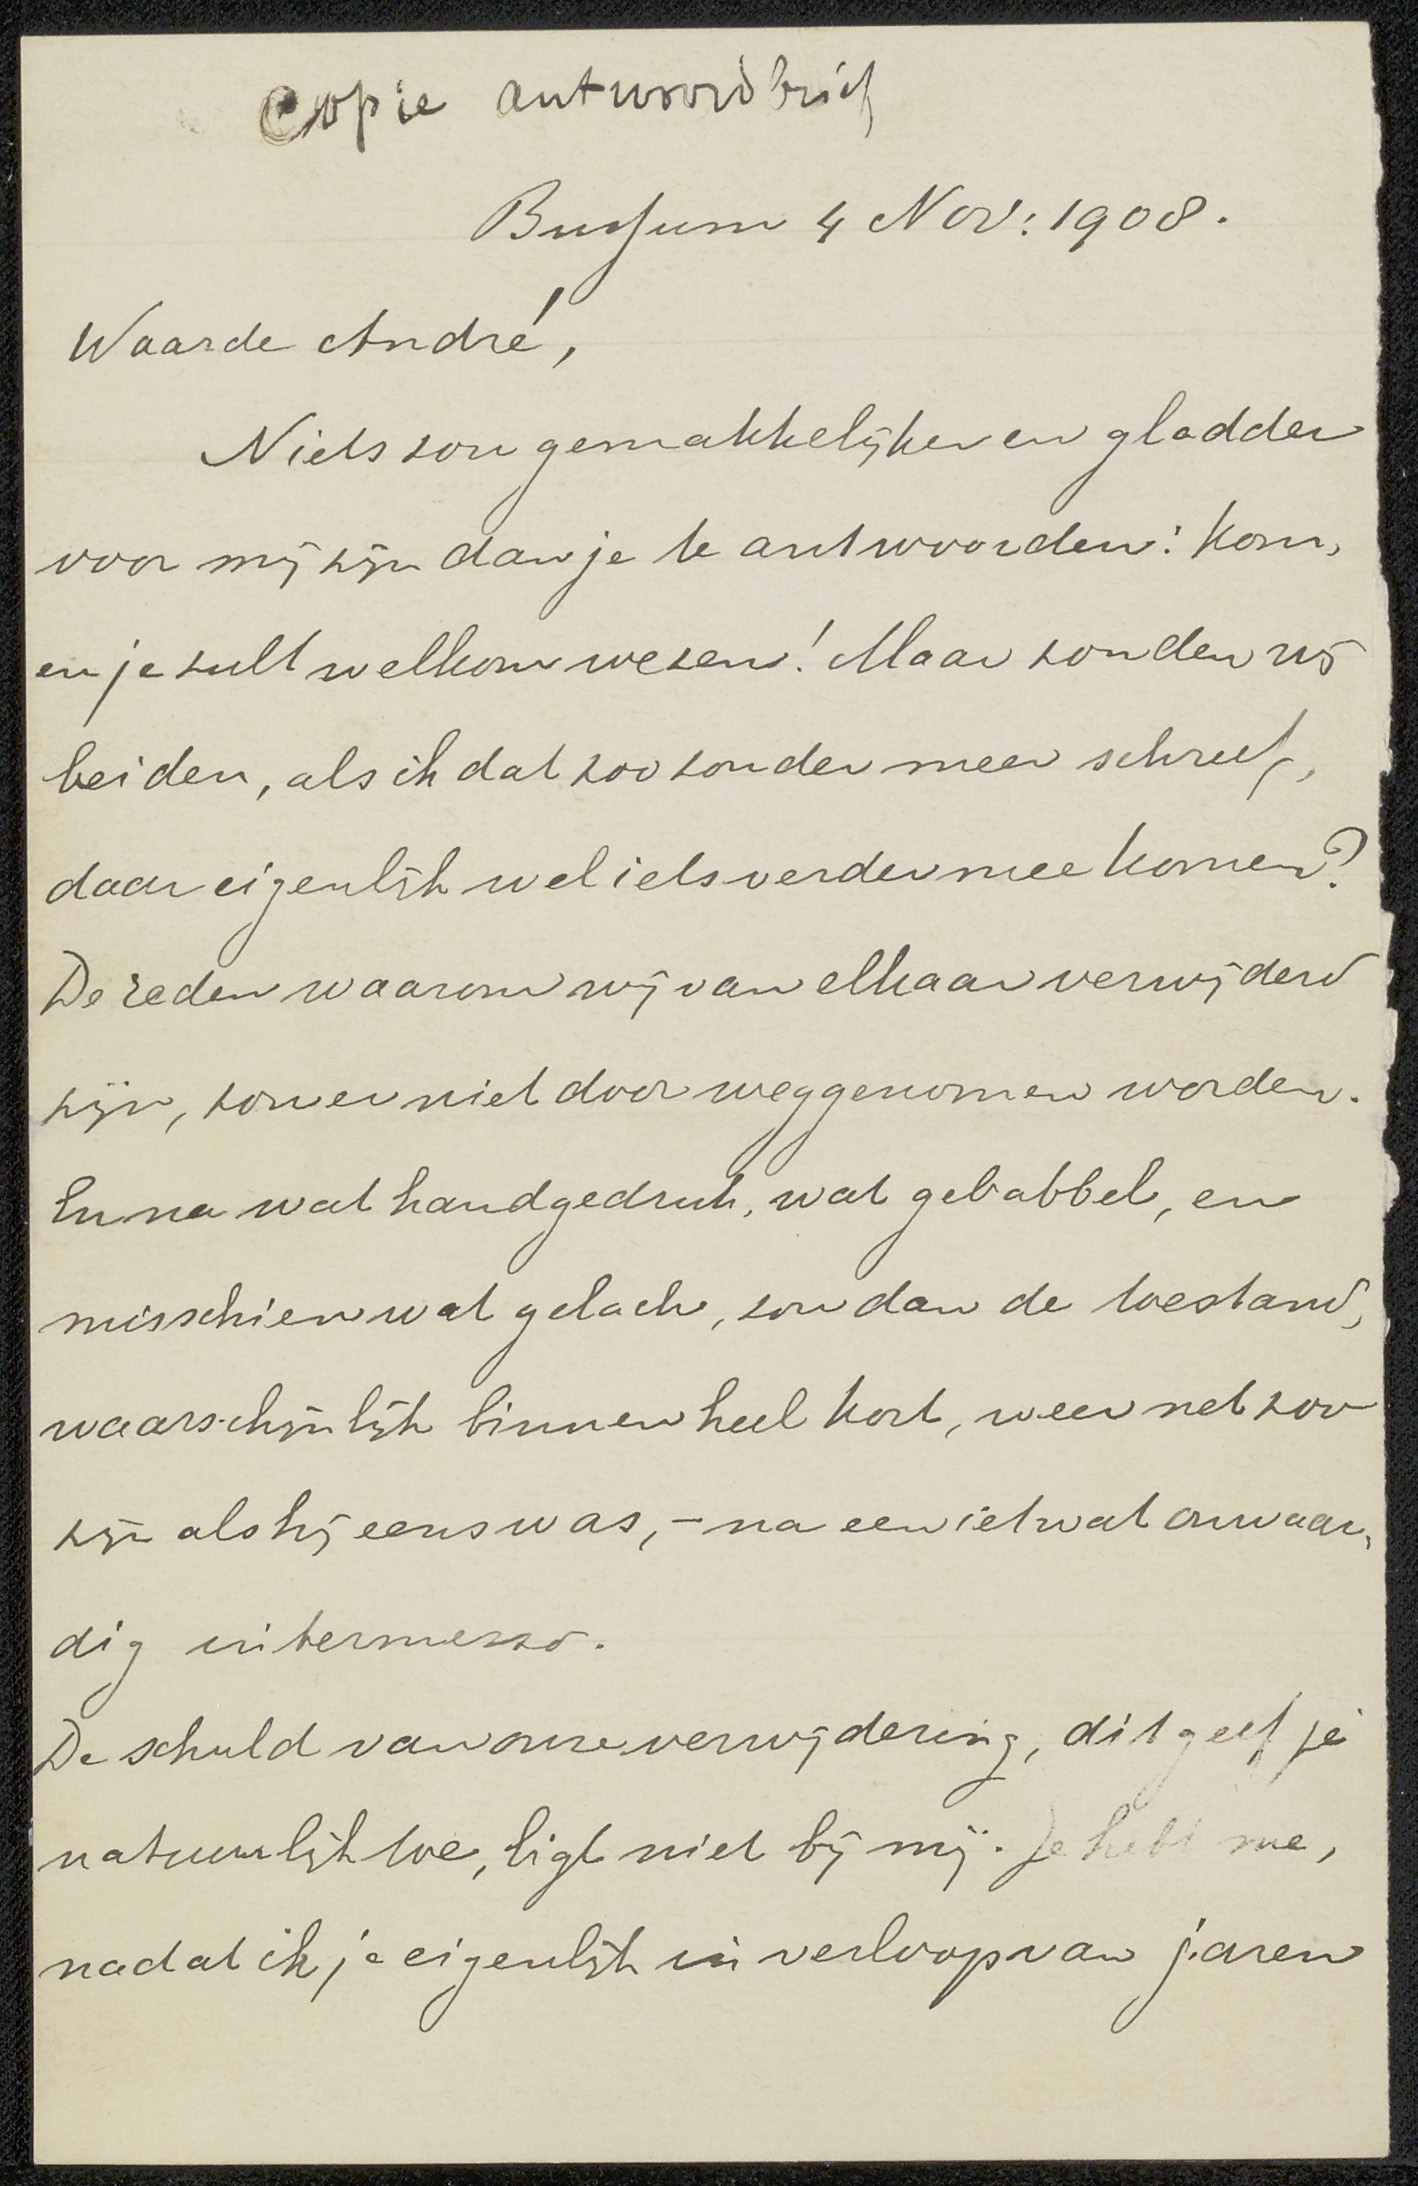 Copie antwoordbrief
Bussum 4 Nov: 1908.
Waarde André,
Niets zou gemakkelijker en gladder
voor mij zijn dan je te antwoorden: kom,
en je zult welkom wezen! Maar zouden wij
beiden, als ik dat zoo zonder meer schreef,
daar eigenlijk wel iets verder mee komen?
De reden waarom wij van elkaar verwijderd
zijn, zou er niet door weggenomen worden.
En na wat handgedruk, wat gebabbel, en
misschien wat gelach, zou dan de toestand,
waarschijnlijk binnen heel kort, weer net zoo
zijn als hij eens was, – na een ietwat onwaar-
dig intermezzo.
De schuld van onze verwijdering, dit geef je
natuurlijk toe, ligt niet bij mij. Je hebt me,
nadat ik je eigenlijk in verloop van jaren